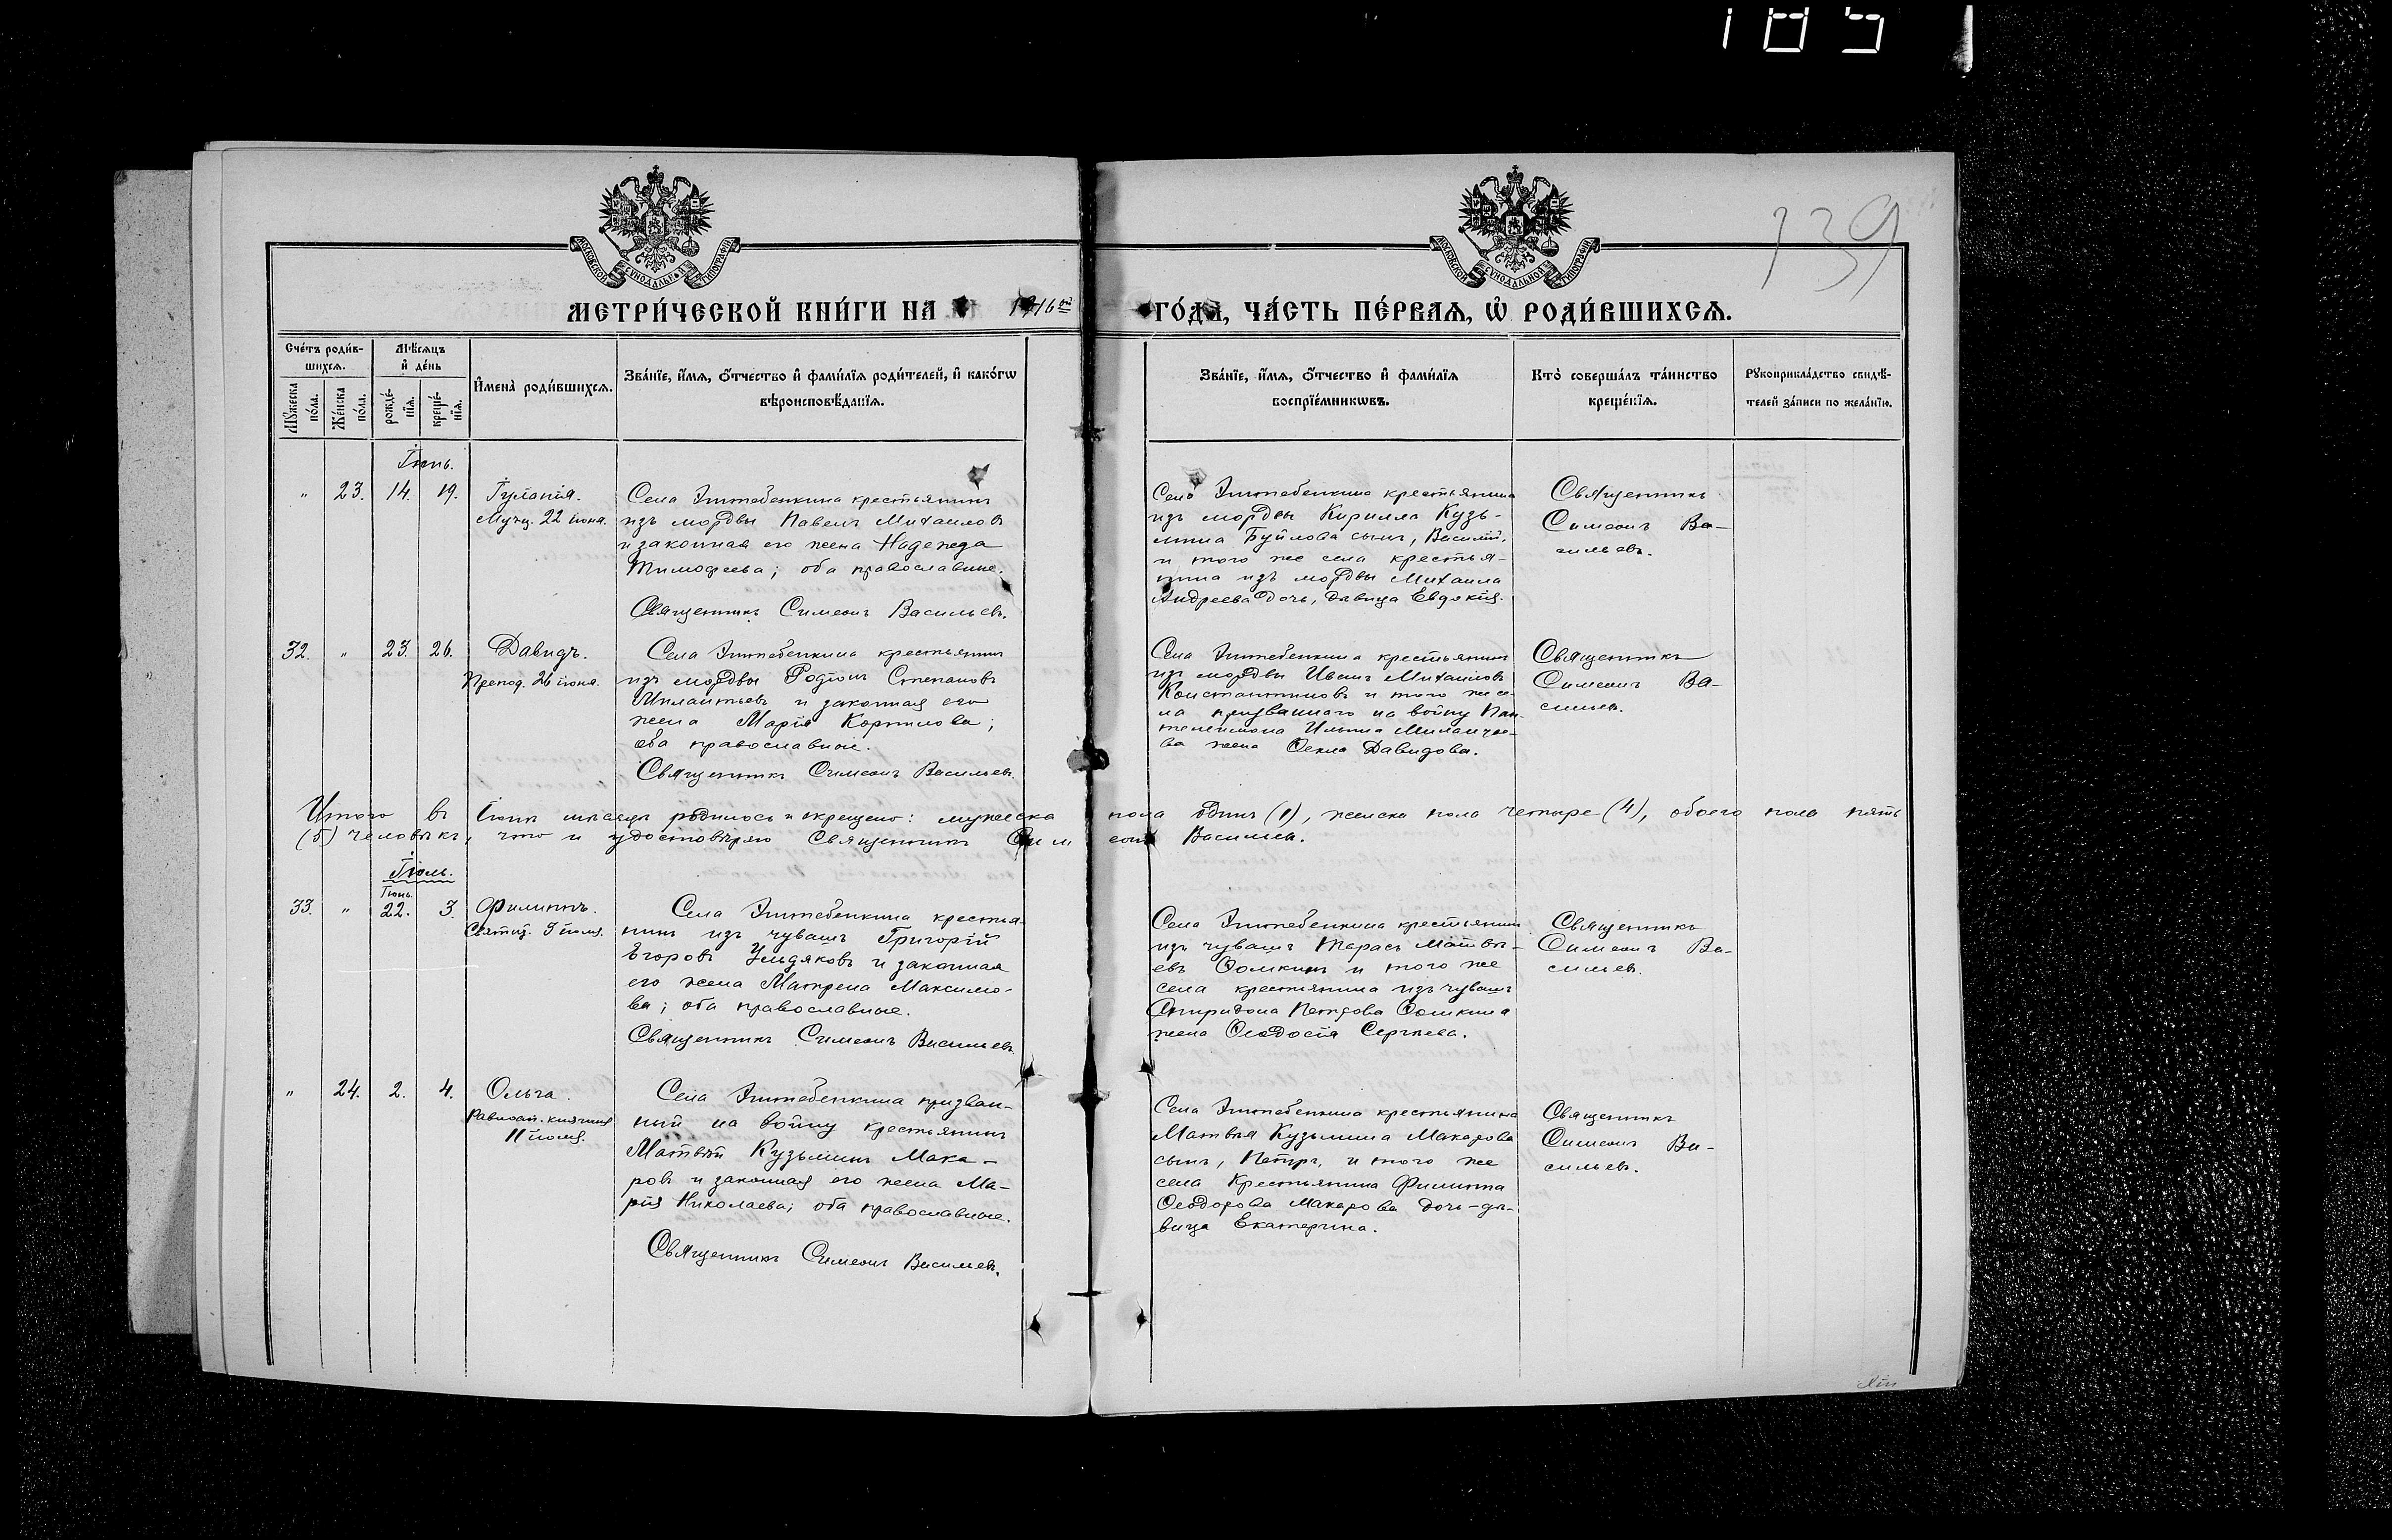 185
139
МОСКОВСКОЙ СѴНОДАЛЬНОЙ ТИПОГРАФІИ
МОСКОВСКОЙ СѴНОДАЛЬНОЙ ТИПОГРАФІИ
МЕТРИ́ЧЕСКОЙ КНИ́ГИ НА 1916й ГО́ДА, ЧА́СТЬ ПЕ́РВАЯ, Ѡ҆ РОДИ́ВШИХСЯ.
Сче́тъ роди́в-
шихся.
Мѣ́сяцъ
и҆ де́нь
Мꙋ́жеска
по́ла.
Же́нска
по́ла.
рожде́-
нїя.
креще́-
нїя.
И҆мена̀ роди́вшихся.
Зва́нїе, и҆́мя, ѻ҆́тчество и҆ фами́лїя роди́телей, и҆ како́гѡ
вѣроисповѣ́данїя.
Зва́нїе, и҆́мя, ѻ҆́тчество и҆ фами́лїя
воспрїе́мникѡвъ.
Кто̀ соверша́лъ та́инство
креще́нїя.
Рꙋкоприкла́дство свидѣ́-
телей за́писи по жела́нїю.
Іюнь.
" 23. 14. 19.
Іуланія.
Мучц. 22 іюня.
Села крестьянинъ
изъ мордвы Павелъ Михаиловъ
и законная его жена Надежда
Тимофеева; оба православные.
Священникъ Симеонъ Васильевъ.
Села крестьянина
изъ мордвы Кирилла Кузь-
мина Буйлова сынъ, Василій,
и того же села крестья-
нина изъ мордвы Михаила
Андреева дочь, дѣвица Евдокія.
Священникъ
Симеонъ Ва-
сильевъ.
32. " 23. 26.
Давидъ.
Препод. 26 іюня.
Села крестьянинъ
изъ мордвы Родіонъ Степановъ
и законная его
жена Марія Корнилова;
оба православные.
Священникъ Симеонъ Васильевъ.
Села крестьянинъ
изъ мордвы Иванъ Михаиловъ
Константиновъ и того же се-
ла призваннаго на войну Пан-
телеимона Ильина
ва жена Ѳекла Давидова.
Священникъ
Симеонъ Ва-
сильевъ.
Итого въ Іюнѣ мѣсяцѣ родилось и крещено: мужеска пола одинъ (1), женска пола четыре (4), обоего пола пять
(5) человѣкъ, что и удостовѣряю Священникъ Симеонъ Васильевъ.
Іюль.
Іюнь.
33. " 22. 3.
Филиппъ.
Святит. іюля.
Села крестья-
нинъ изъ чувашъ Григорій
Егоровъ и законная
его жена Матрена Максимо-
ва; оба православные.
Священникъ Симеонъ Васильевъ.
Села крестьянинъ
изъ чувашъ Тарасъ Матвѣ-
евъ Ѳомкинъ и того же
села крестьянина изъ чувашъ
Спиридона Петрова Ѳомкина
жена Ѳеодосія Сергѣева.
Священникъ
Симеонъ Ва-
сильевъ.
" 24. 2. 4.
Ольга.
Равноап. княгиня
11 іюля.
Села призван-
ный на войну крестьянинъ
Матвѣй Кузьминъ Мака-
ровъ и законная его жена Ма-
рія Николаева; оба православные.
Священникъ Симеонъ Васильевъ.
Села крестьянина
Матвѣя Кузьмина Макарова
сынъ, Петръ, и того же
села крестьянина Филиппа
Ѳеодорова Макарова дочь-дѣ-
вица Екатерина.
Священникъ
Симеонъ Ва-
сильевъ.